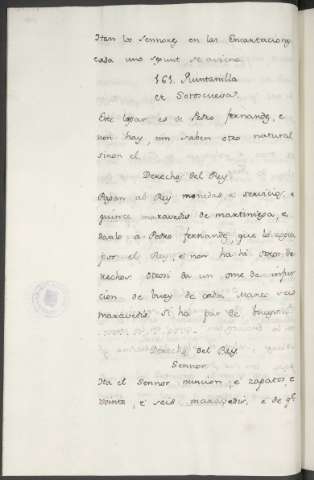 Iten los sennores en las Encartaciones
cada uno segunt se aviene
161. Quintanilla
et Sotoscueva.
Este logar es de Pedro fernandez, e
non hay, nin saben otro natural
sinon el.
Derechos del Rey
Pagan al Rey monedas e servicios, e
quince maravedis de martiniega, e
danlo a Pedro fernandez, que los
por el Rey, e non ha hi otros de
rechos. Otrosi da un ome de infur
cion de buey de cada Marzo seis
maravedis, si ha par de bueyes.
Derechos del Rey
Sennor
Ha el Sennor nuncion, e zapatos, e
veinte, e seis maravedis, e de